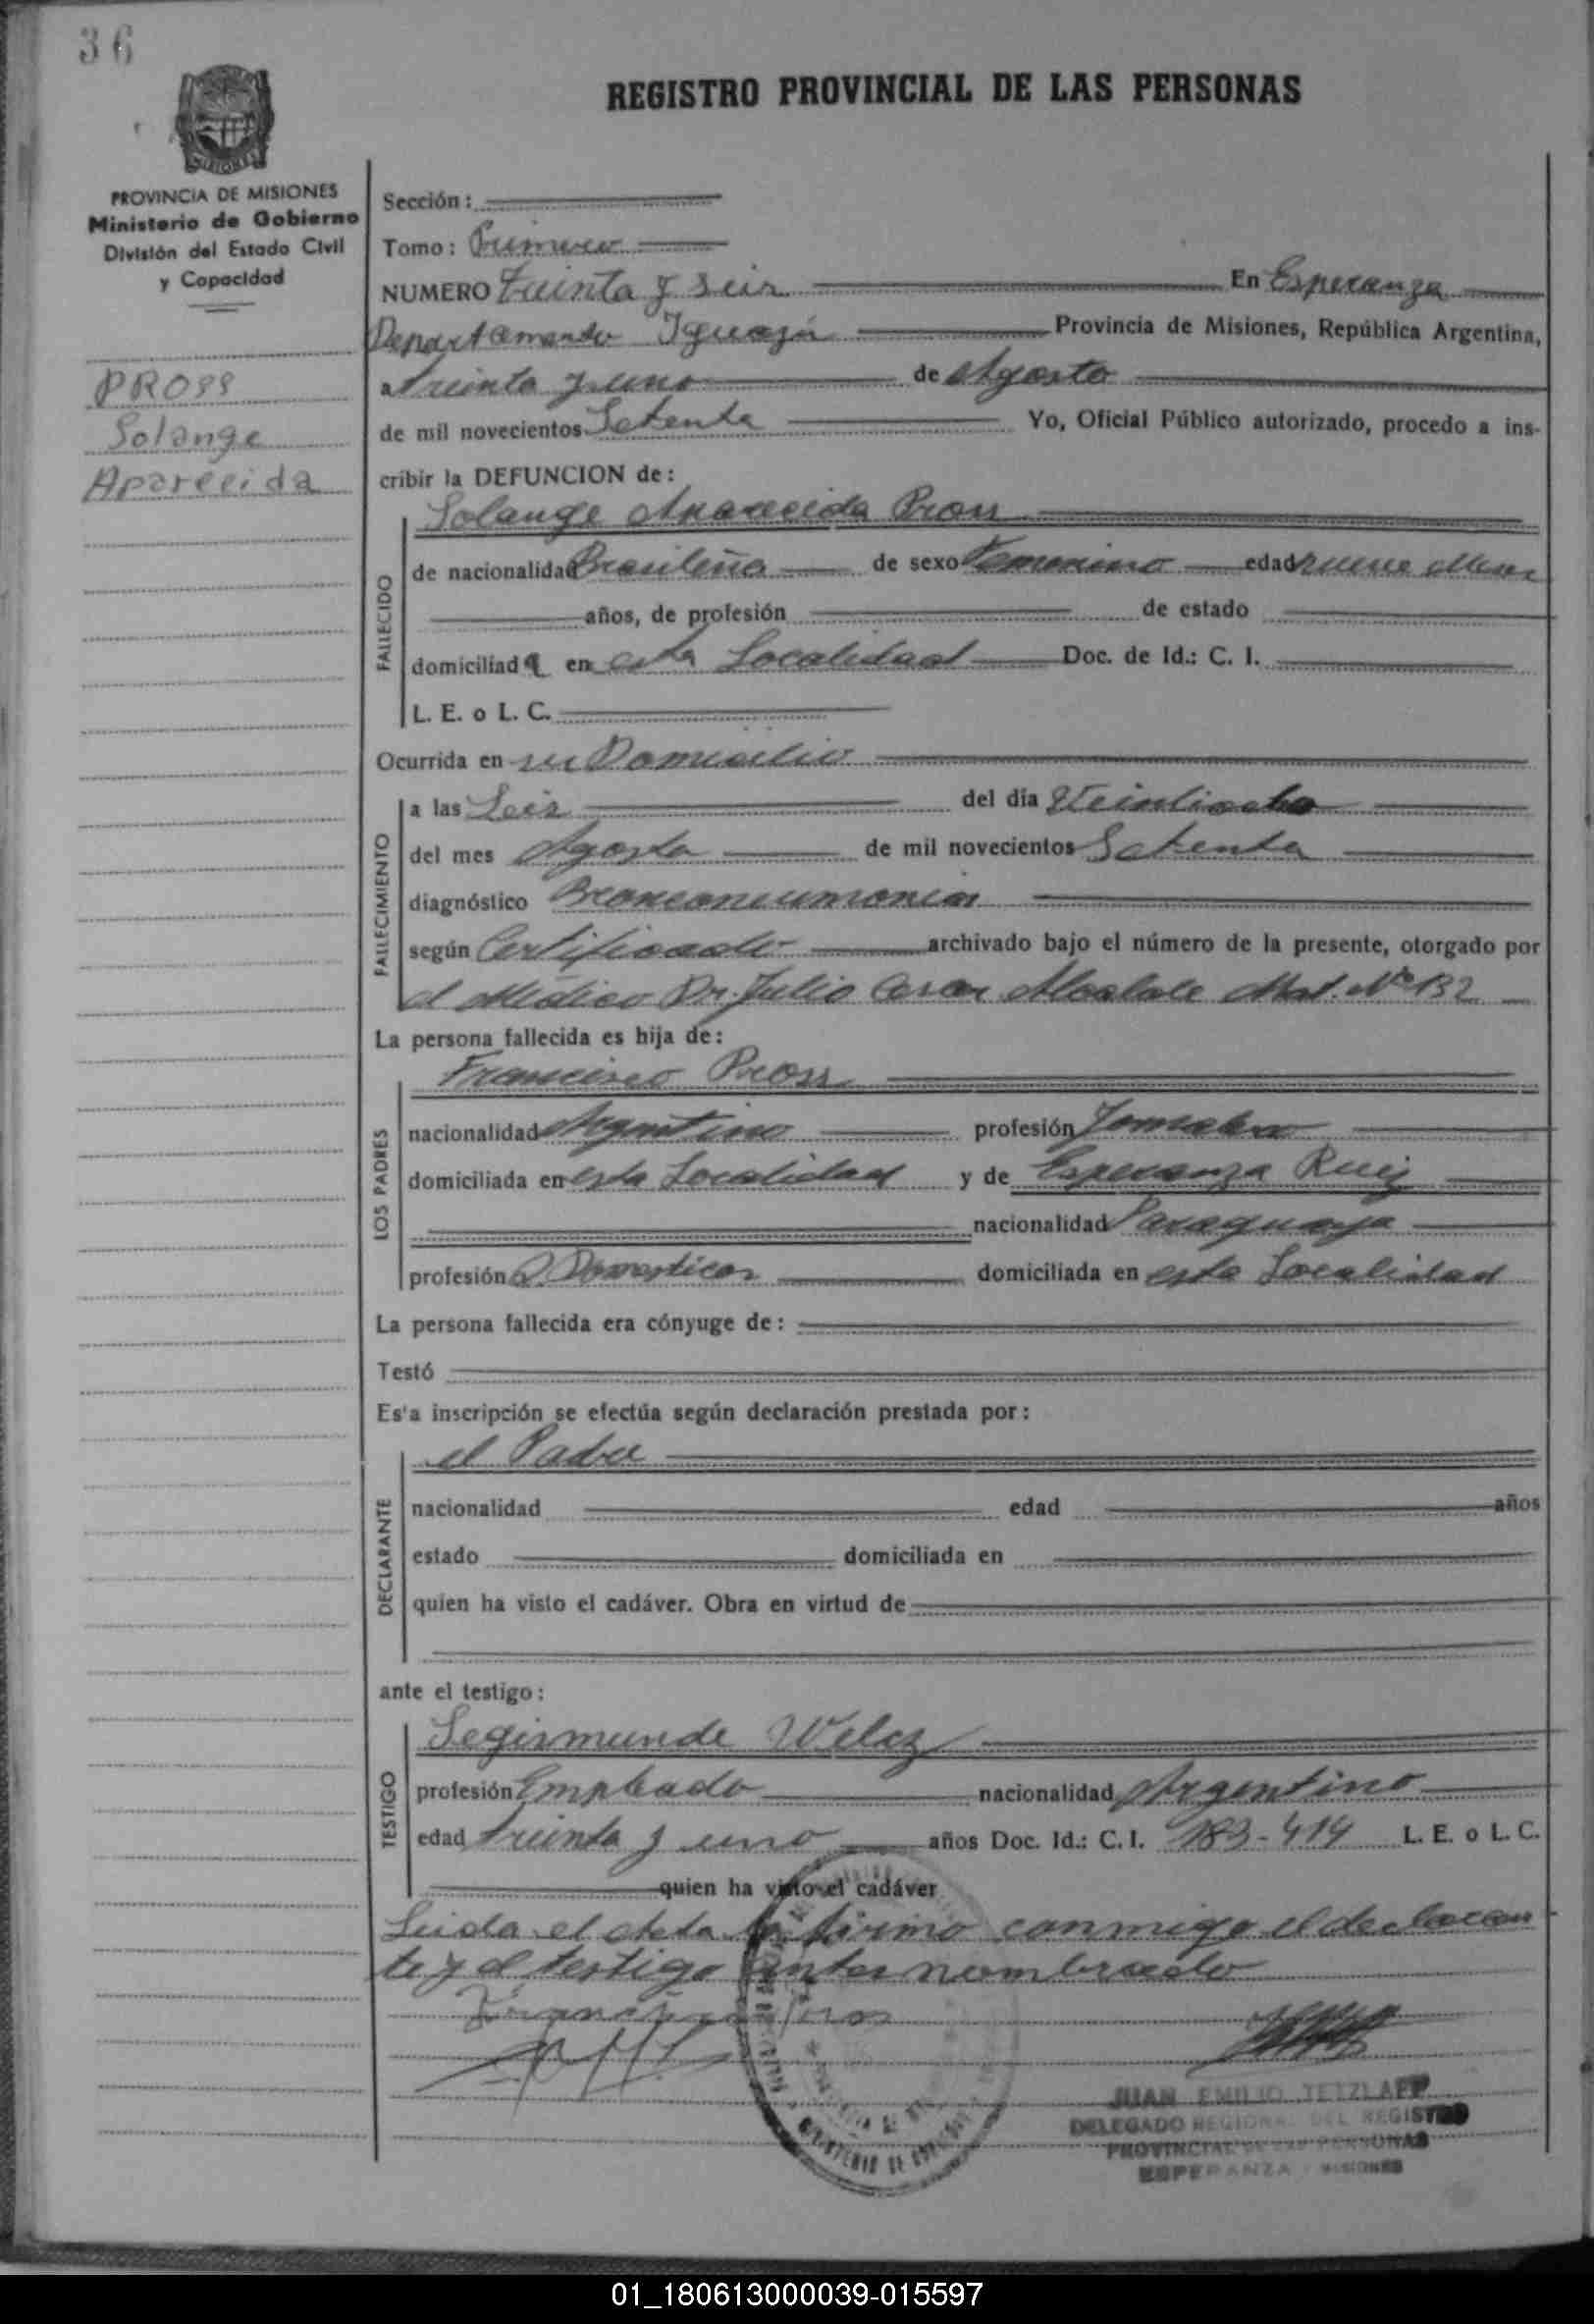 36
REGISTRO PROVINCIAL DE LAS PERSONAS
MISIONES
PROVINCIA DE MISIONES
Ministerio de Gobierno
División del Estado Civil
y Capacidad
PROSS
Solange
Aparecida
Sección:
Tomo: Primero
NUMERO Treinta y seis En Esperanza
Departamento Iguazú Provincia de Misiones, República Argentina,
a treinta y uno de Agosto
de mil novecientos Setenta Yo, Oficial Público autorizado, procedo a ins-
cribir la DEFUNCION de:
FALLECIDO
Solange Aparecida Pross
de nacionalidad Brasileña de sexo Femenino edad nueve Meses
años, de profesión de estado
domiciliada en esta Localidad Doc. de Id.: C. I.
L. E. o L. C.
Ocurrida en su Domicilio
FALLECIMIENTO
a las Seis del día Veintiocho
del mes Agosto de mil novecientos Setenta
diagnóstico Bronconeumonia
según Certificado archivado bajo el número de la presente, otorgado por
el Médico Dr. Julio Cesar Mat. Nº 132
La persona fallecida es hija de:
LOS PADRES
Francisco Pross
nacionalidad Argentino profesión Jornalero
domiciliada en esta Localidad y de Esperanza Ruiz
nacionalidad Paraguaya
profesión Domesticos domiciliada en esta Localidad
La persona fallecida era cónyuge de:
Testó
Es'a inscripción se efectúa según declaración prestada por:
DECLARANTE
el Padre
nacionalidad edad años
estado domiciliada en
quien ha visto el cadáver. Obra en virtud de
ante el testigo:
TESTIGO
Segismundo Welaz
profesión Empleado nacionalidad Argentino
edad treinta y uno años Doc. Id.: C. I. 183-414 L. E. o L. C.
quien ha visto el cadáver
Leida el Acta la firmo conmigo el declaran
te y el testigo antes nombrado
JUAN EMILIO TETZLAFF
DELEGADO REGIONAL DEL REGISTRO
PROVINCIAL DE LAS PERSONAS
ESPERANZA - MISIONES
01_180613000039-015597